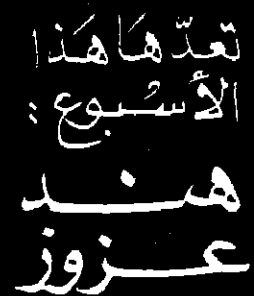 تعدّها هَذا
الأسُبوع :
هند
عزوز